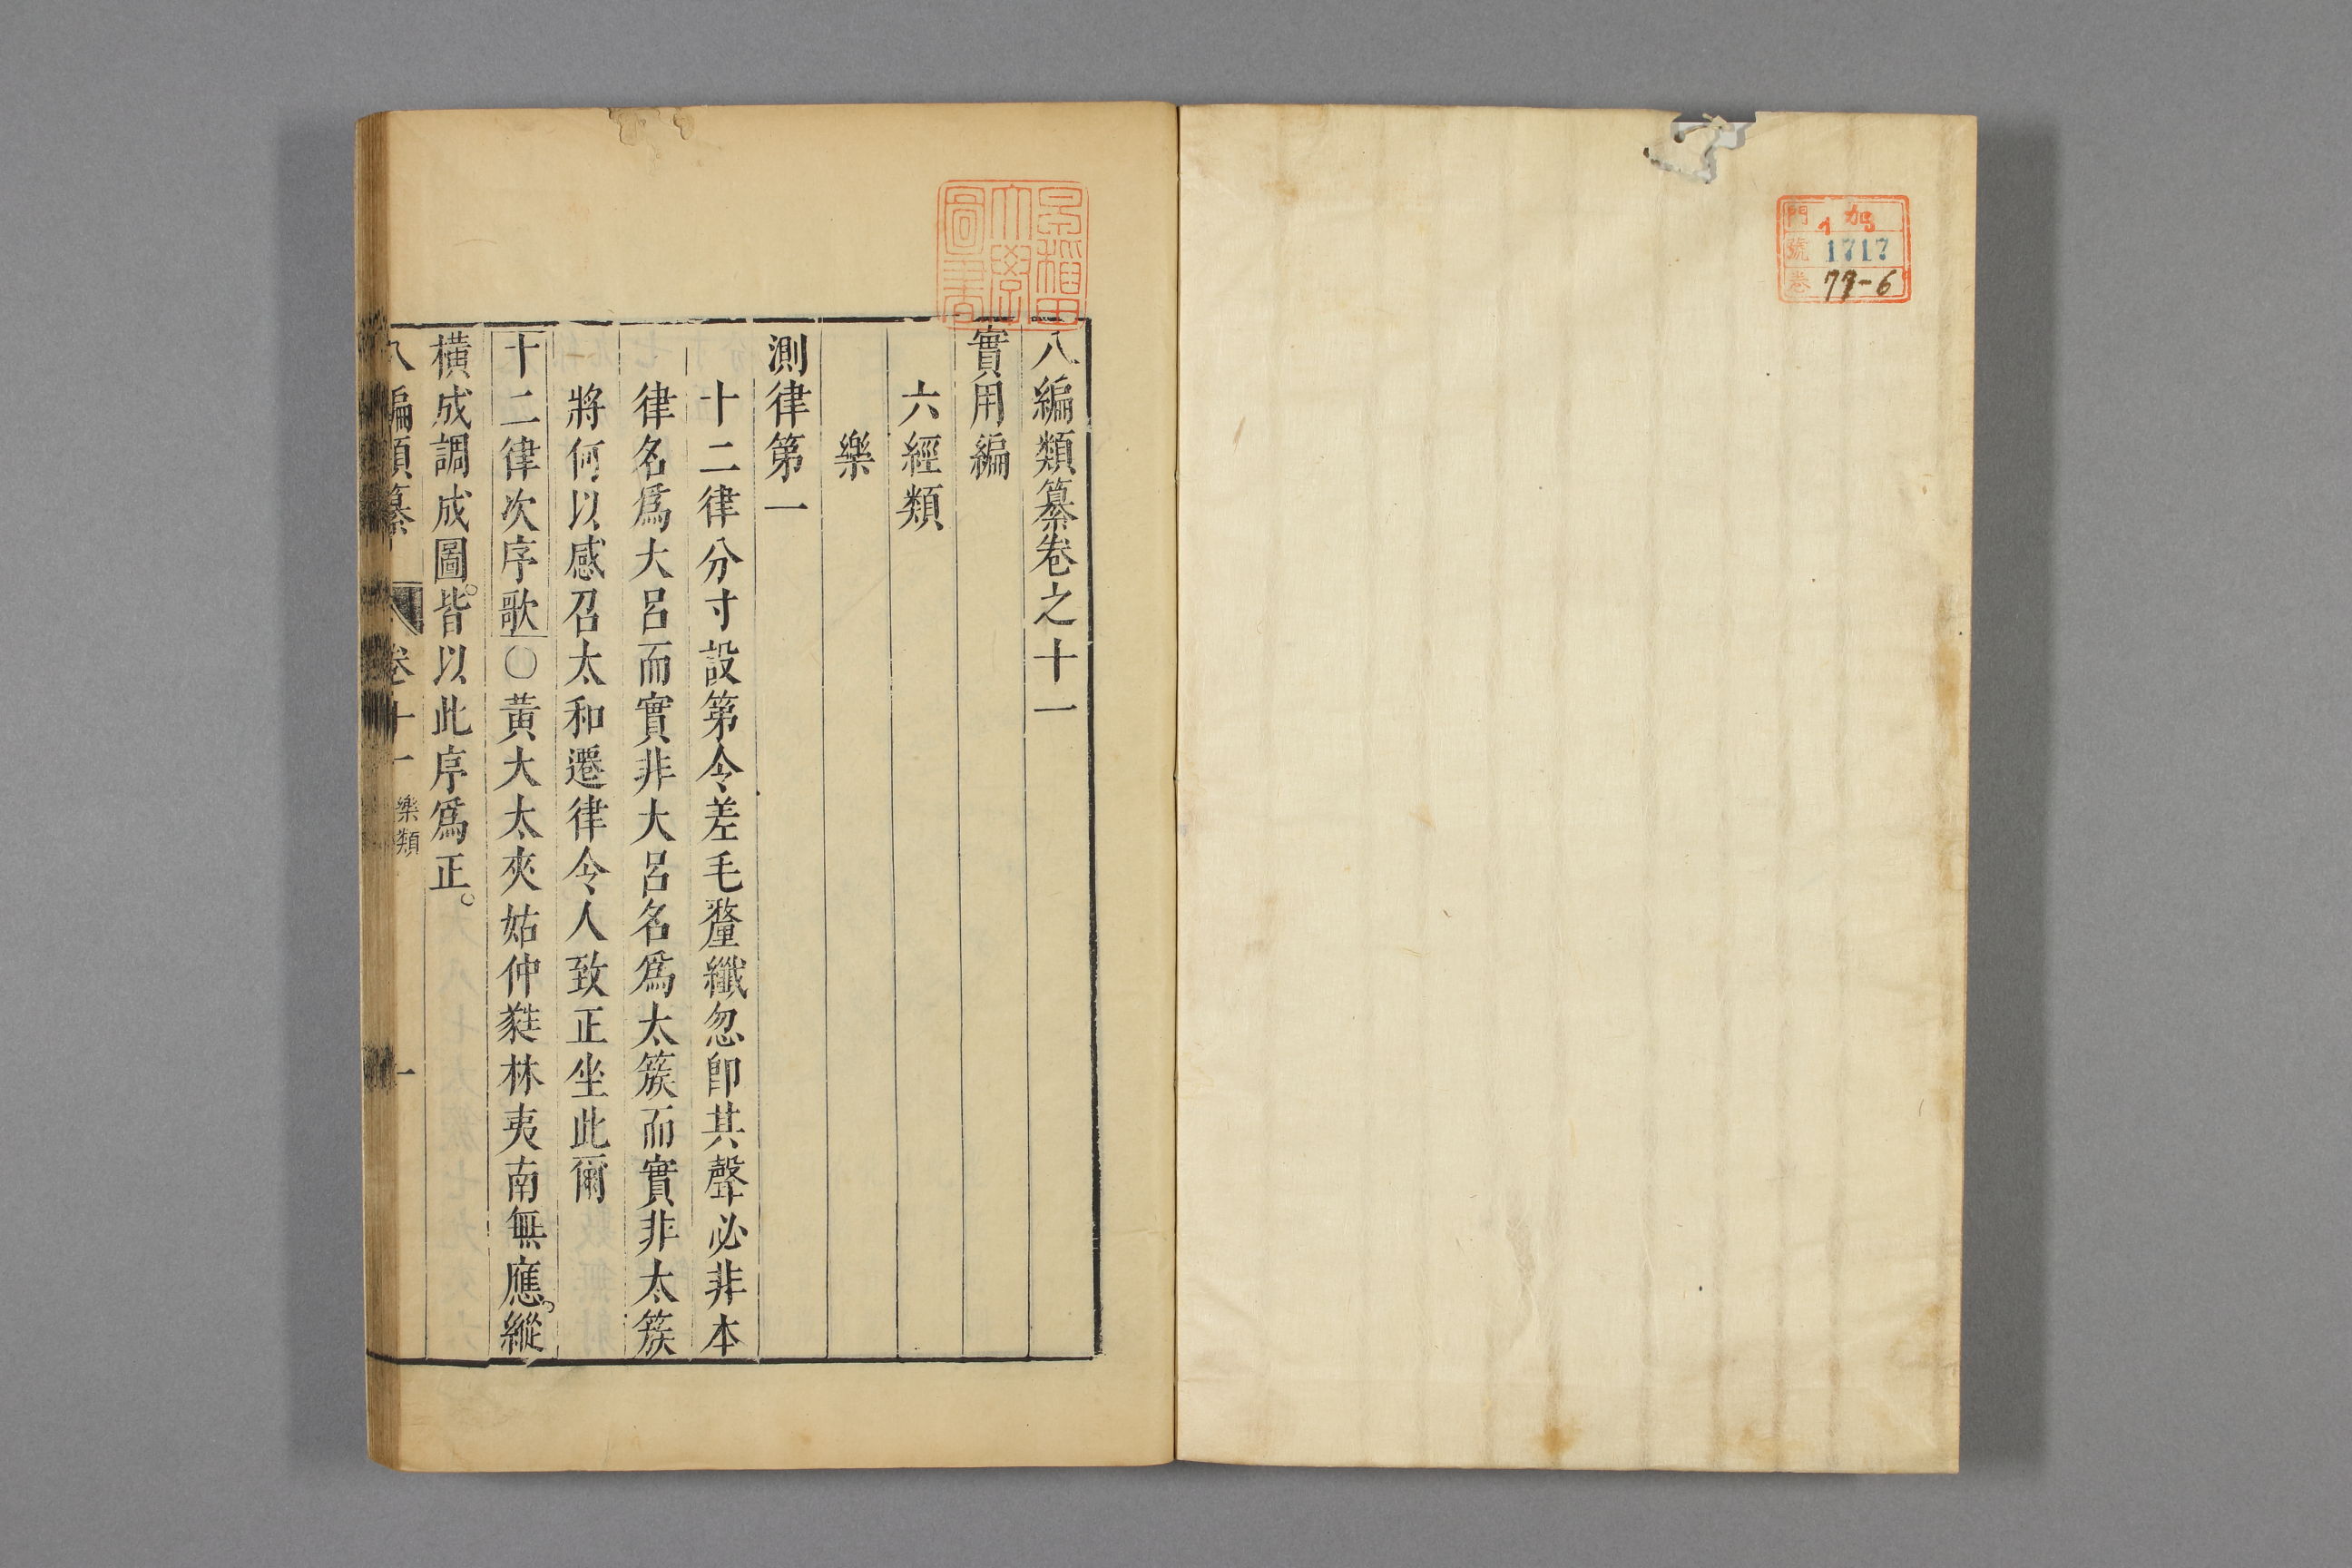 門 加
號 1717
卷 77-6
早稻田大學圖書
八編類纂卷之十一
實用編
六經類
樂
測律第一
十二律分寸設第令差毛釐纖忽卽其聲必非本
律名爲大呂而實非大呂名爲太簇而實非太簇
將何以感召太和遷律令人致正坐此爾
十二律次序歌〇黃大太夾姑仲蕤林夷南無應。縱
橫成調成圖。皆以此序爲正。
八編類纂 卷十一 樂類 一